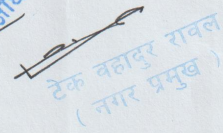 टेक वहादुर रावल
( नगर प्रमुख )